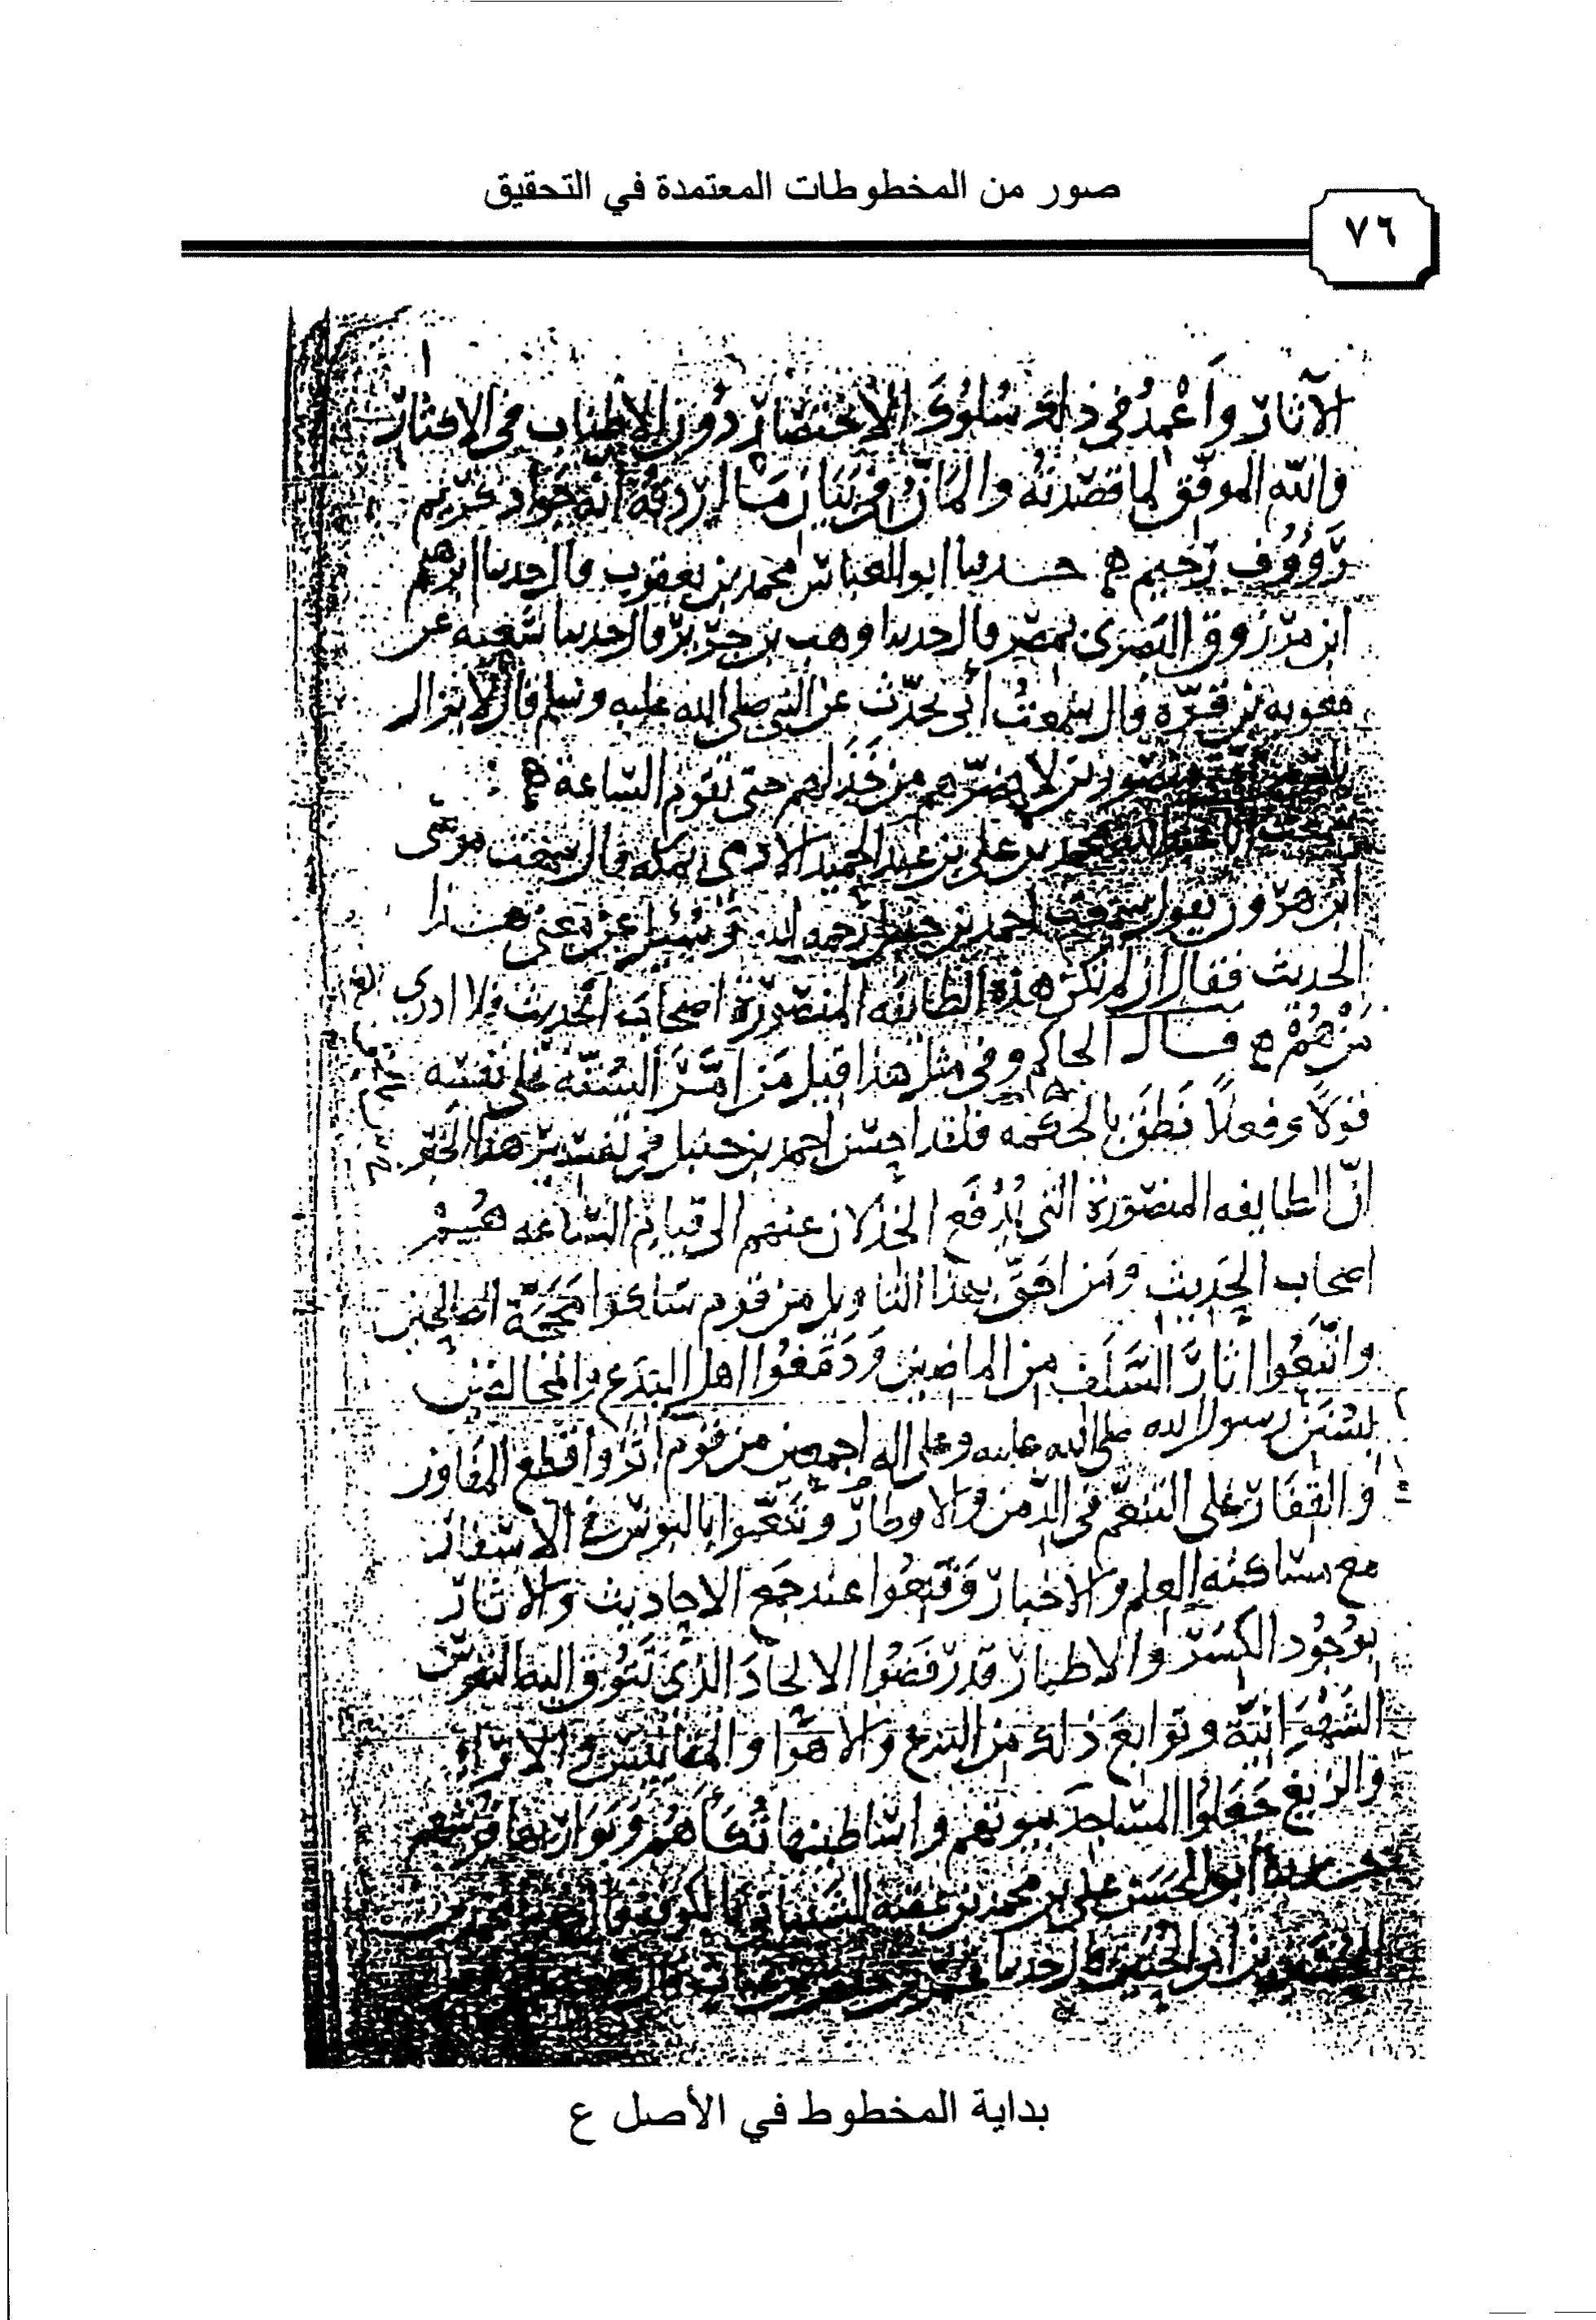 صور من المخطوطات المعتمدة في التحقيق
٧٦
الآثار واعمد في ذلك سلوك الاختصار دون الاطناب في الاكثار
والله الموفق لما قصدته والمان في بيان ما اردته انه جواد كريم
رؤوف رحيم ه حدثنا ابو العباس محمد بن يعقوب قال حدثنا ابرهيم
ابن مرزوق البصرى بمصر قال حدثنا وهب بن جرير قال حدثنا شعبه عن
معويه بن قرة قال سمعت أبى يحدث عن النبي صلى الله عليه وسلم قال لا يزال
منصورين لا يضرهم من خذلهم حتى تقوم الساعة ه
محمد بن على بن عبد الحميد الادمى بمكه قال سمعت موسى
ابن هرون يقول سمعت احمد بن حنبل رحمه الله وسئل عن معنى هذا
الحديث فقال ان لم تكن هذه الطائفه المنصورة اصحاب الحديث فلا ادرى
من هم ه قال الحاكم وفي مثل هذا قيل من امر السنة على نفسه
قولا وفعلا نطق بالحكمه فلقد احسن احمد بن حنبل في تفسير هذا الخبر
ان الطايفه المنصورة التي يدفع الخذلان عنهم الى قيام الساعه هم
اصحاب الحديث ومن احق بهذا التاويل من قوم سلكوا محجة الصالحين
واتبعوا اثار السلف من الماضين ودمغوا اهل البدع والمخالفين
بسنن رسول الله صلى الله عليه وعلى اله اجمعين من قوم اثروا قطع المفاوز
والقفار على التنعم في الدمن والاوطار وتنعموا بالبوس في الاسفار
مع مساكنة العلم والاخبار وقنعوا عند جمع الاحاديث والاثار
بوجود الكسر والاطمار قد رفضوا الالحاد الذى تتوق اليه النفوس
الشهوانية وتوابع ذلك من البدع والاهوا والمقاييس والاراء
والزيغ جعلوا المساجد بيوتهم واساطينها تكاهم وبواريها فرشهم
حدثنا ابو الحسن على بن محمد بن عقبه الشيبانى بالكوفه
بن ابى الحنين قال حدثنا
بداية المخطوط في الأصل ع